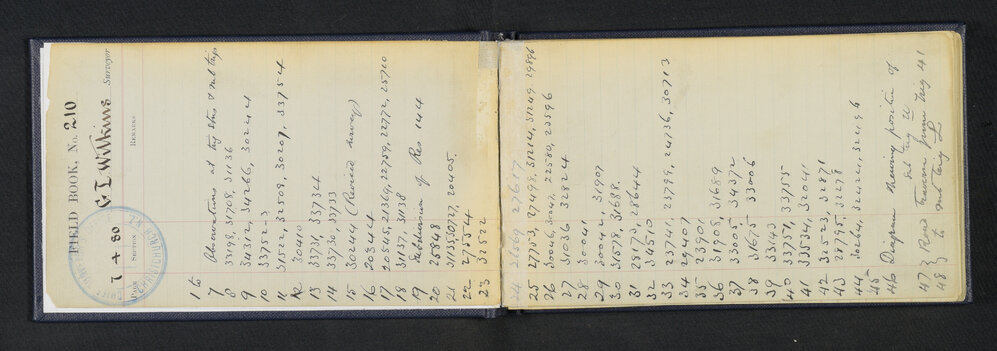 FIELD BOOK, No. 210
T + 80 G T Wilkins Surveyor
PAGE SECTION REMARKS
CHRISTCHURCH
1 to
7 Observations at trig stns & sub trigs
8 33198, 31708, 31136
9 34312, 34266, 30244
10 33523
11 31522, 32509, 30207, 33754
12 30410
13 33731, 33734
14 33730, 33733
15 30244 (Revised survey)
16 20344
17 20245, 21369, 22759, 22772, 25710
18 31137, 31138
19 Subdivision of Res 144
20 25848
21 31135, 30727, 20405.
22 27554
23 31522
24 26569 27617
25 27753, 27498, 31214, 31249, 29896
26 30046, 30247, 22580, 23596
27 31036 32824
28 30041
29 30044, 31907
30 31578, 31688.
31 28173, 25644
32 34510
33 23741, 23799, 24736, 30713
34 29407
35 23907
36 31905, 31689
37 33005, 34372
38 31675, 33006
39 33143
40 33751, 33755
41 33534, 32041
42 33523, 32871
43 28795, 33278
44 30264, 32424, 32496
45
46 Diagram showing position of
Sub Trig U
47 } Road Traverse from Trig 41
48 } Sub Trig L